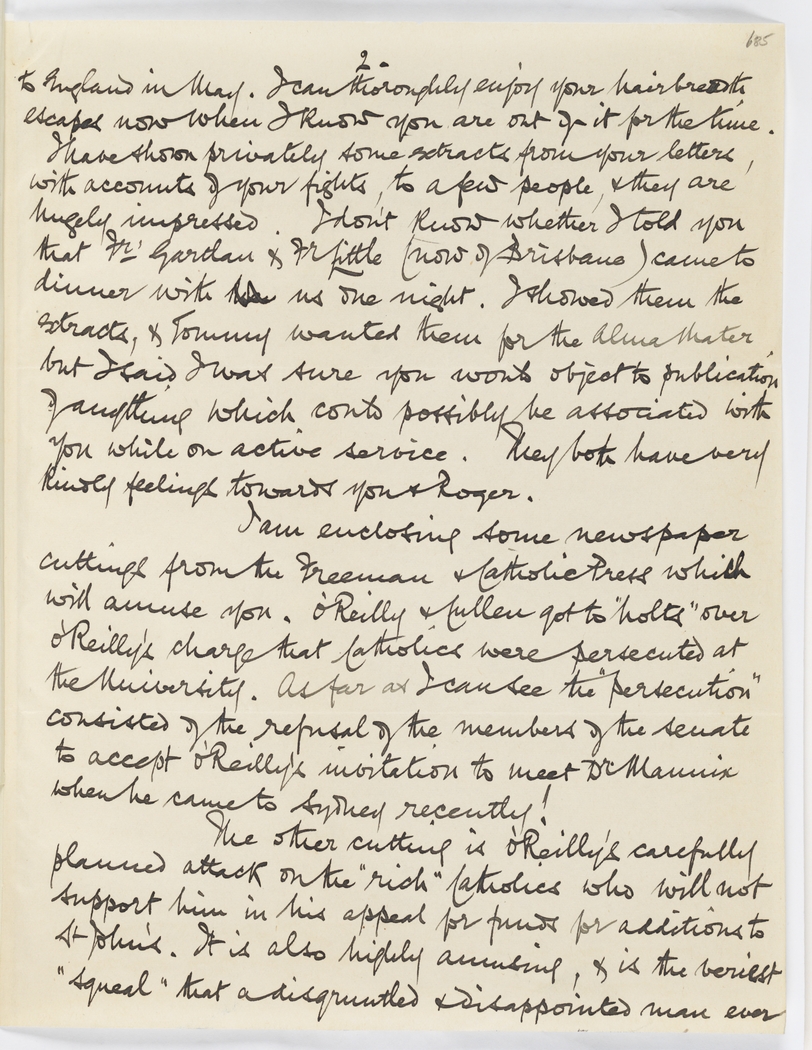 685
2.
to England in May. I can thoroughly enjoy your hairbreadth
escapes now when I know you are out of it for the time.
I have shown privately some extracts from your letters,
with accounts of your fights, to a few people, & they are
hugely impressed. I don't know whether I told you
that Frs Gartlan & Fr Little (now of Brisbane) came to
dinner with us one night. I showed them the
extracts, & Tommy wanted them for the Alma Mater,
but I said I was sure you would object to publication
of anything which could possibly be associated with
you while on active service. They both have very
kindly feelings towards you & Roger.
I am enclosing some newspaper
cuttings from the Freeman & Catholic Press which
will amuse you. O'Reilly & Cullen got to "holts" over
O'Reilly's charge that Catholics were persecuted at
the University. As far as I can see the "persecution"
consisted of the refusal of the members of the senate
to accept O'Reilly's invitation to meet Dr Mannix
when he came to Sydney recently!
The other cutting is O'Reilly's carefully
planned attack on the "rich" Catholics who will not
support him in his appeal for funds for additions to
St John's. It is also highly amusing, & is the veriest
"squeal" that a disgruntled & disappointed man ever